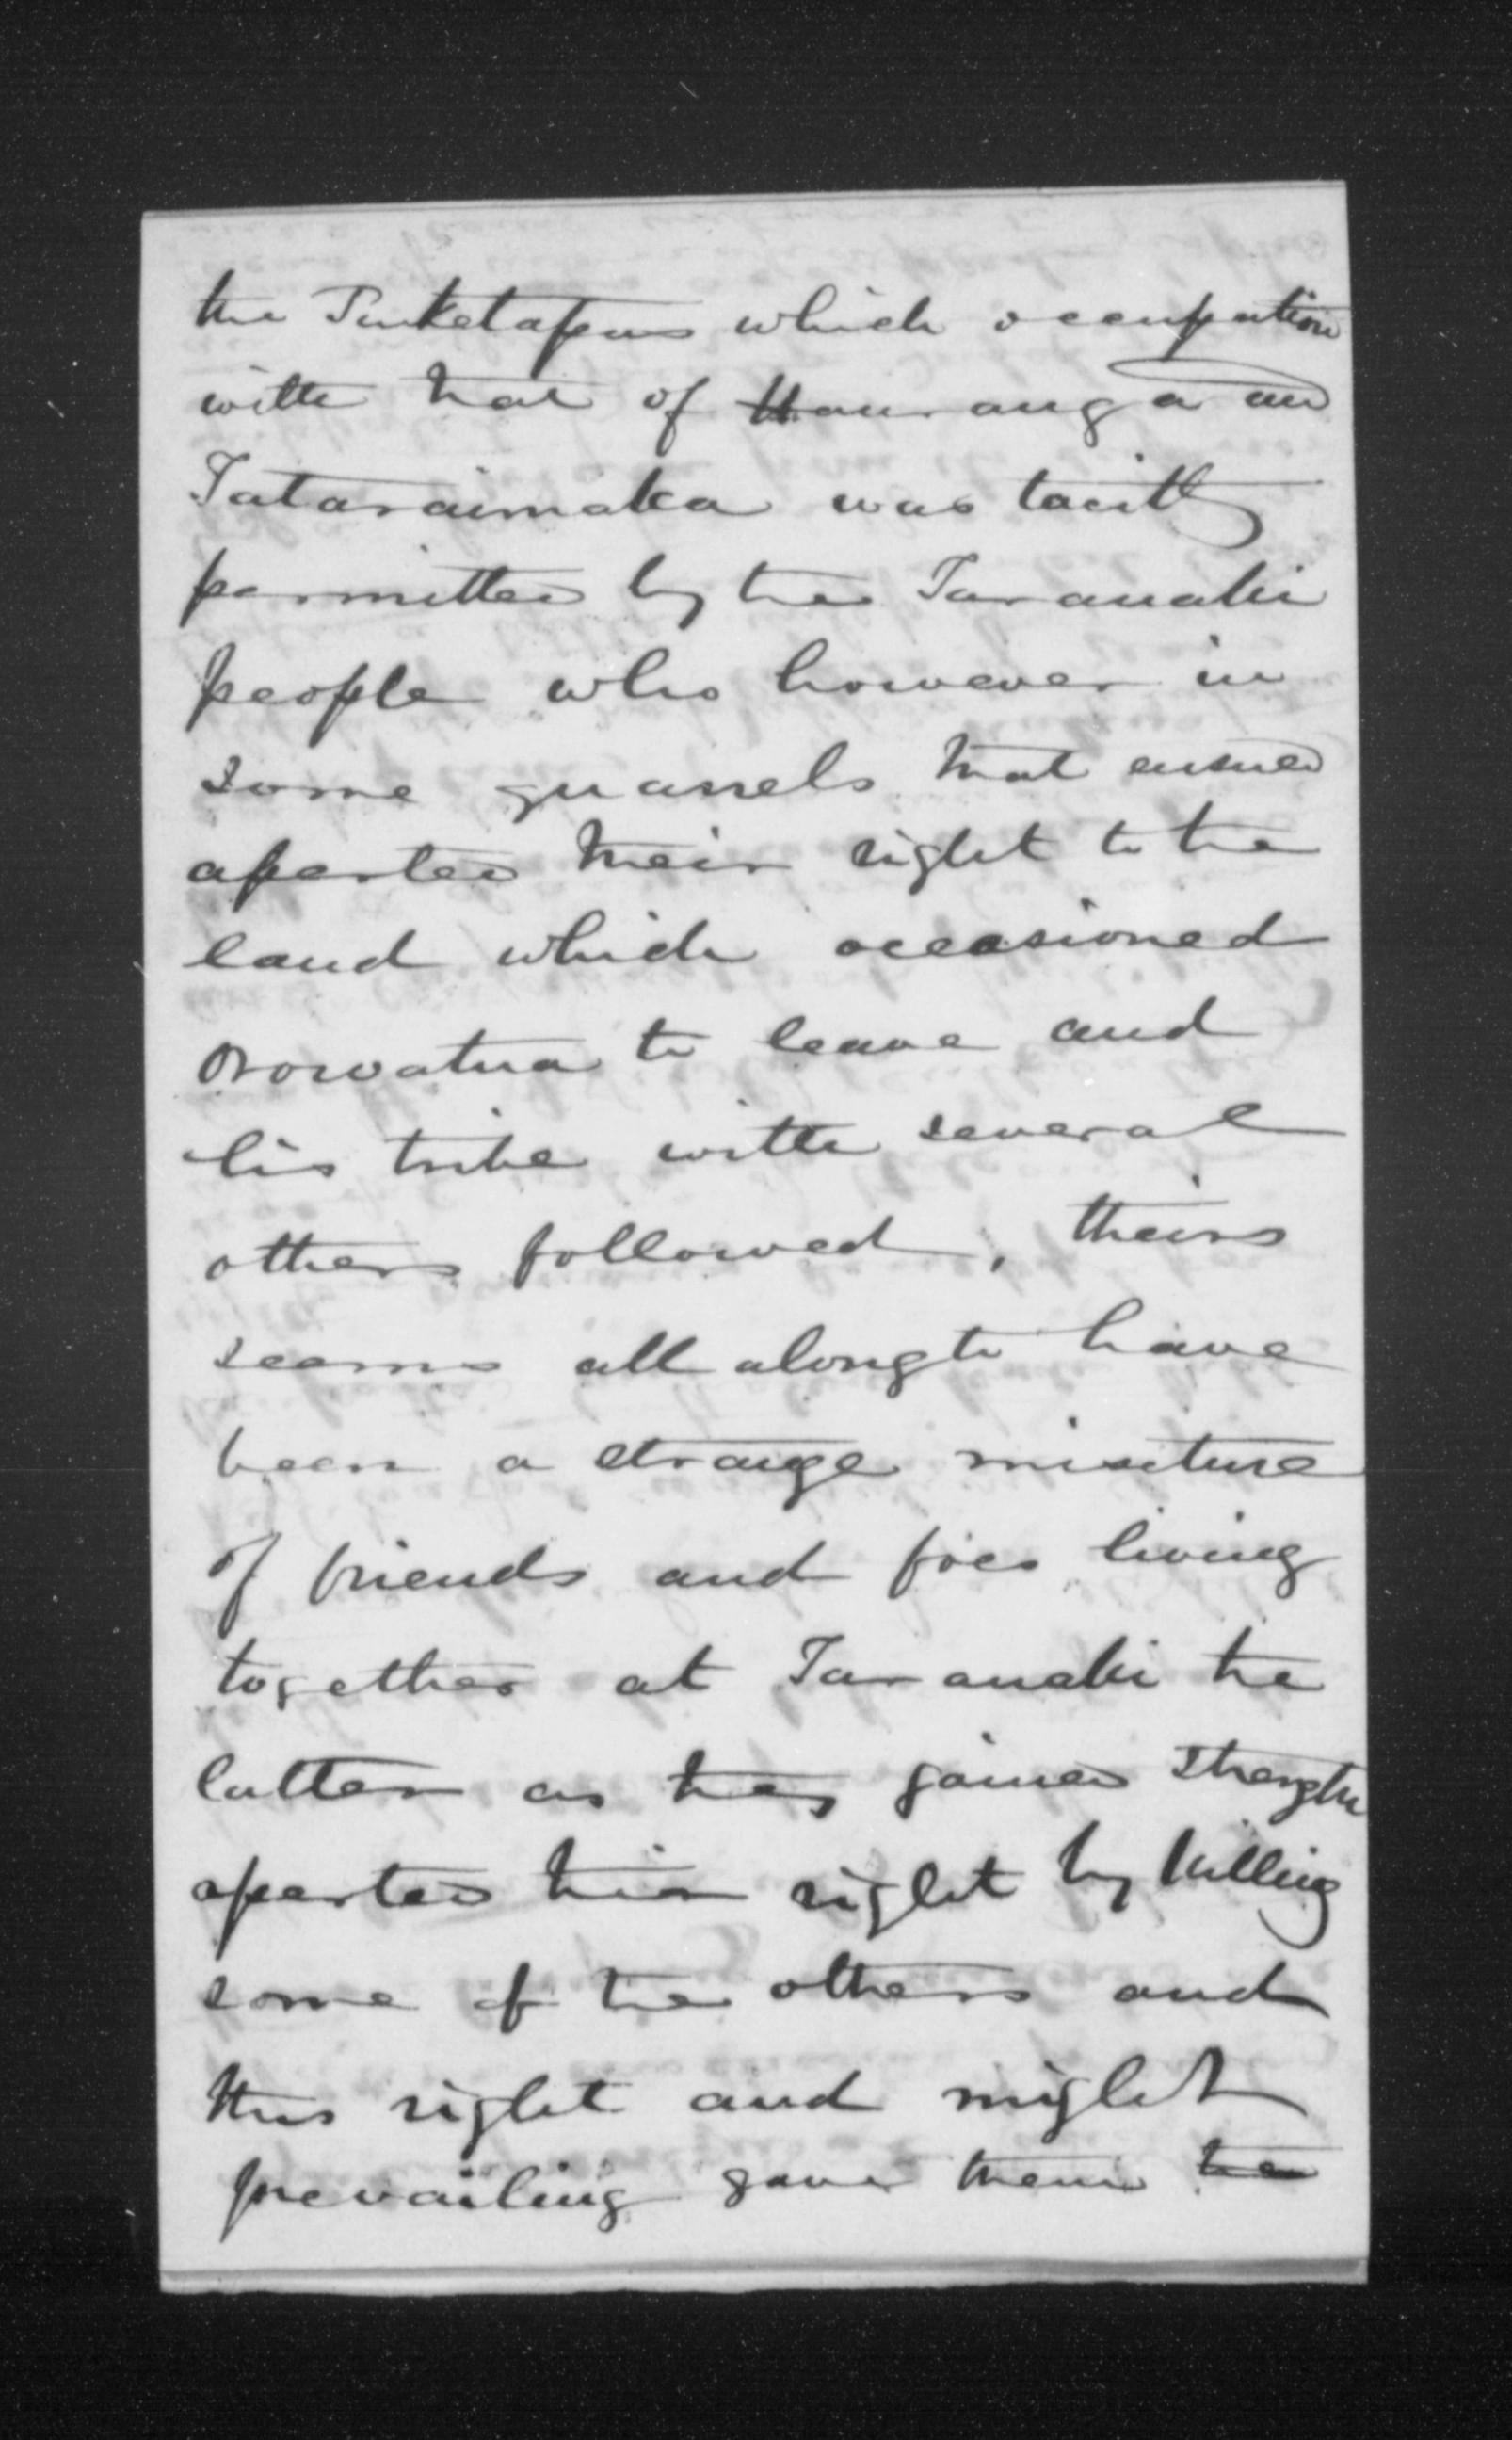 the Puketapus which occupation
with that of Hauranga and
Tataraimaka was tacitly
permitted by the Taranaki
people who however in
some quarrels that ensued
asserted their right to the
land which occasioned
Orowatua to leave and
his tribe with several
others followed, theirs
seems all along to have
been a strange mixture
of friends and foes living
together at Taranaki the
latter as they gained strength
asserted their right by killing
some of the others and
thus right and might
prevailing gave them the